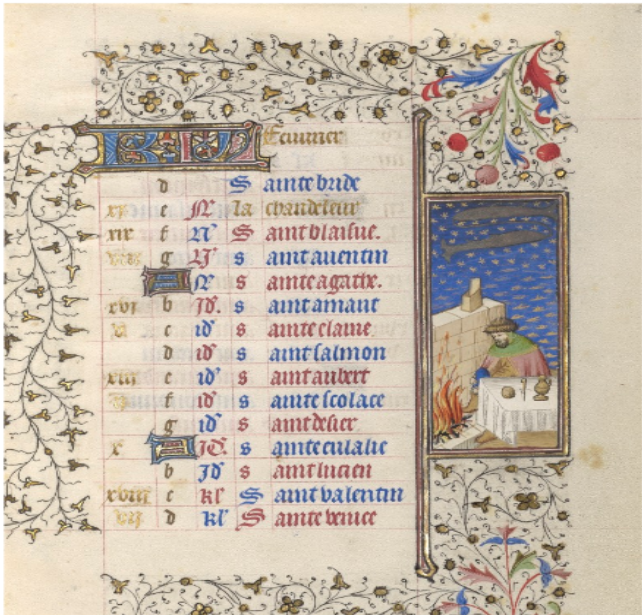 KL Feurier
d S ainte bride
xi e N la chandeleur
xix f N S aint blaisue.
viii g N s aint auentin
A N s ainte agathe.
xvi b Id. s aint amant
v c id s ainte claine
d id s aint salmon
xiii e id s aint aubert
ii f id s ainte scolace
g id s aint desier
x A Id. s ainte eulalie
b Id s aint lucien
xviii c kl S aint valentin
vii d kl S ainte venice